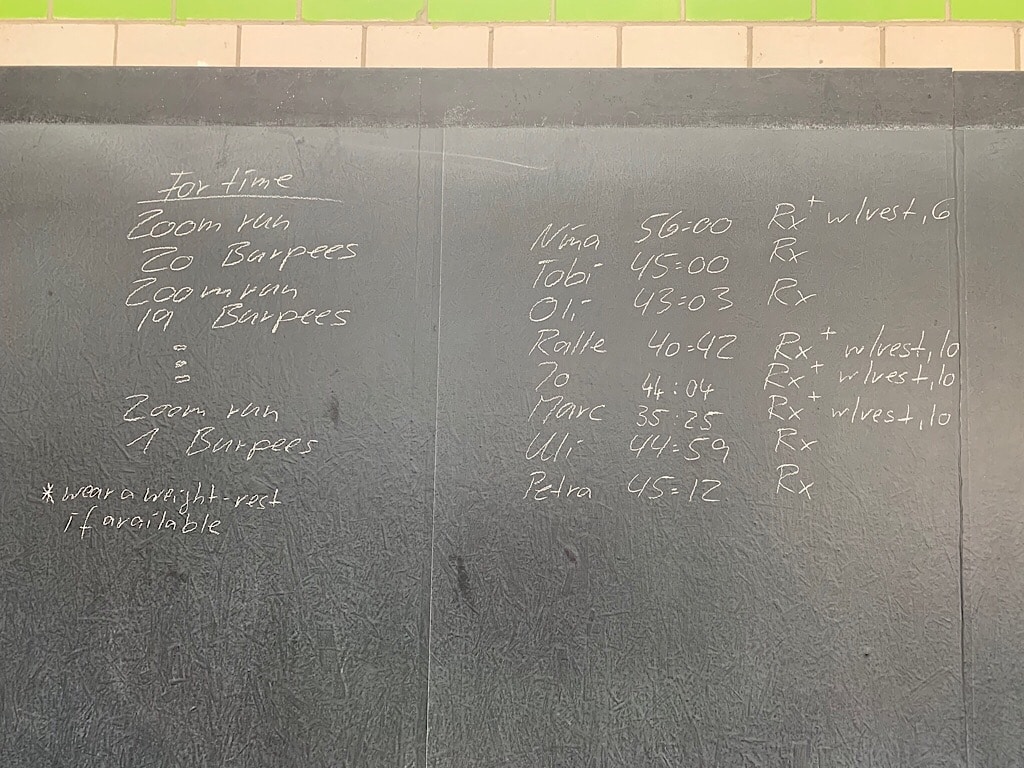 For time
200m run
20 Burpees
200m run
19 Burpees
:
200m run
1 Burpees
* wear a weight-vest
if available
Nina 56:00 Rx+ w/vest, 6
Tobi 45:00 Rx
Oli 43:03 Rx
Ralle 40:42 Rx+ w/vest, 10
Jo 44:04 Rx+ w/vest, 10
Marc 35:25 Rx+ w/vest, 10
Uli 44:59 Rx
Petra 45:12 Rx